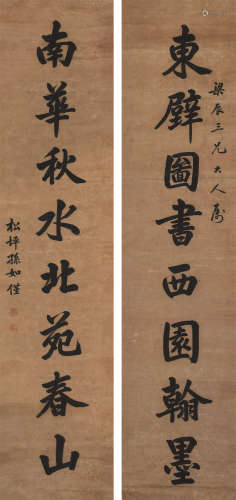 東壁圖書西園翰墨
梁辰三兄大人屬
南華秋水北苑春山
松坪孫如僅